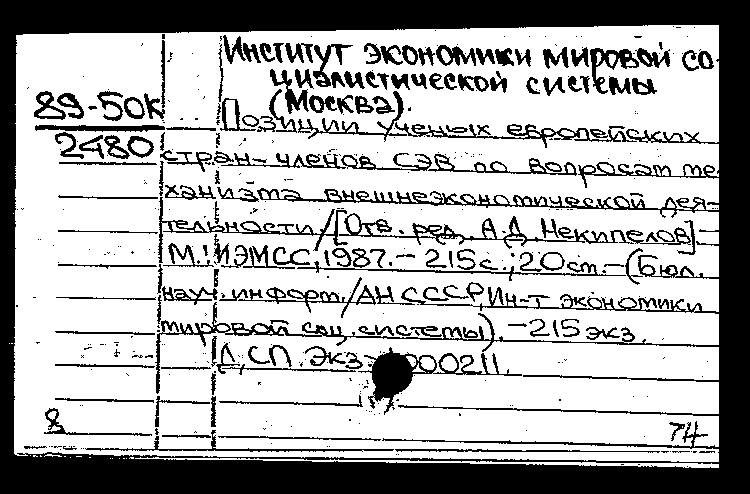 Институт экономики мировой со-
циалистической системы
89-50К (Москва).
Позиции ученых европейских
2480 стран-членов СЭВ по вопросам ме-
ханизма внешнеэкономической дея-
тельности/[Отв. ред. А.Д. Некипелов].-
М.: ИЭМСС, 1987.- 215с.; 20см.-(Бюл.
науч. информ./АН СССР, Ин-т экономики
мировой соц. системы).-215 экз.
Д, СП. Экз 000211.
8 74